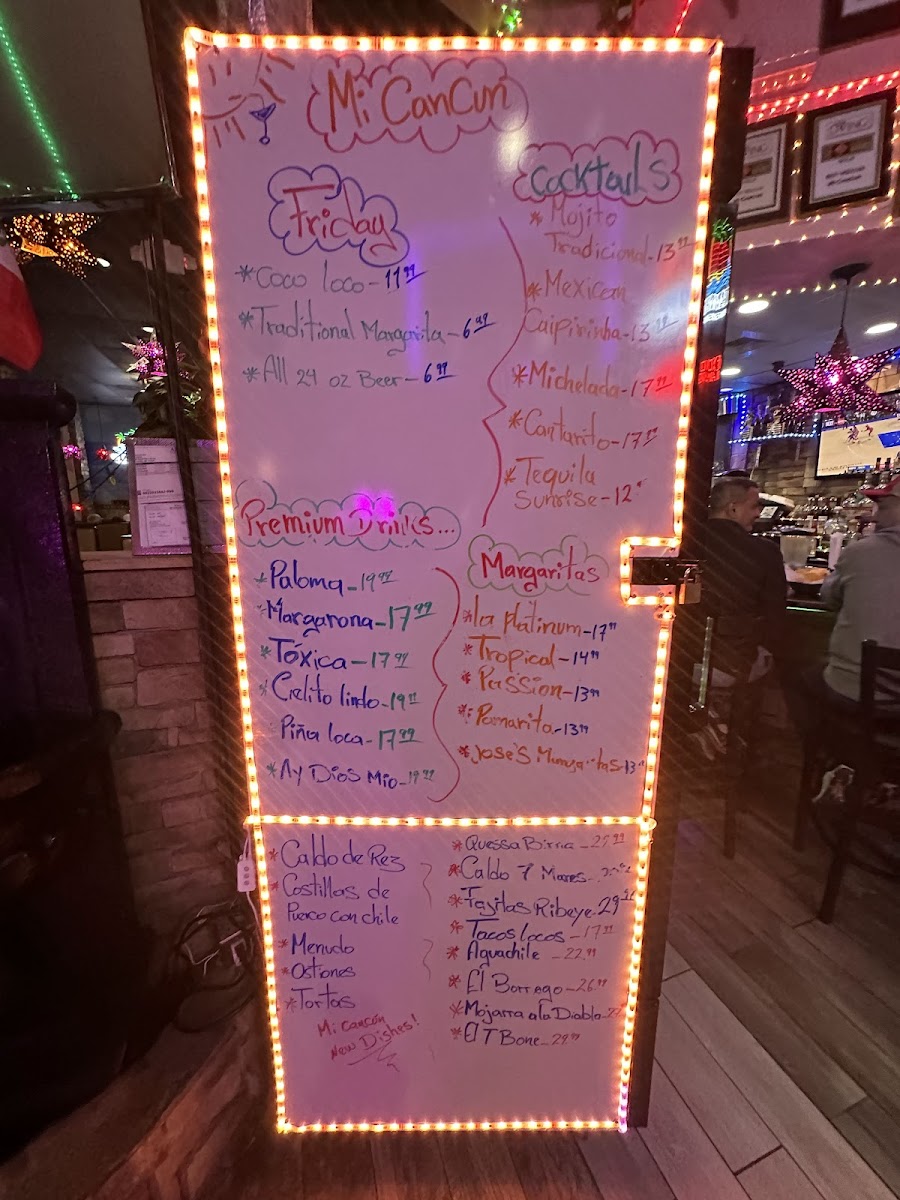 Mi CanCun
Friday
*Coco loco - 11.99
*Traditional Margarita - 6.99
*All 24 oz Beer - 6.99
Cocktails
* Mojito
Tradicional - 13.99
* Mexican
Caipirinha - 13
* Michelada - 17.99
* Cantarito - 17
* Tequila
Sunrise - 12
Premium Drinks...
* Paloma - 19.99
* Margarona - 17.99
* Tóxica - 17.99
* Cielito lindo - 19
Piña loca - 17.99
* Ay Dios Mio - 19.99
Margaritas
* La Platinum - 17
* Tropical - 14.99
* Passion - 13.99
* Pamarita - 13.99
* Jose's - 13
* Caldo de Rez
* Costillas de
Puerco con chile
* Menudo
* Ostiones
* Tortas
Mi Cancún
New Dishes!
* Quessa Birria
* Caldo 7 Mares
* Fajitas Ribeye - 29
* Tacos locos - 17.99
* Aguachile - 22.99
* El Borrego - 26.99
* Mojarra a la Diabla
* El T Bone - 29.99